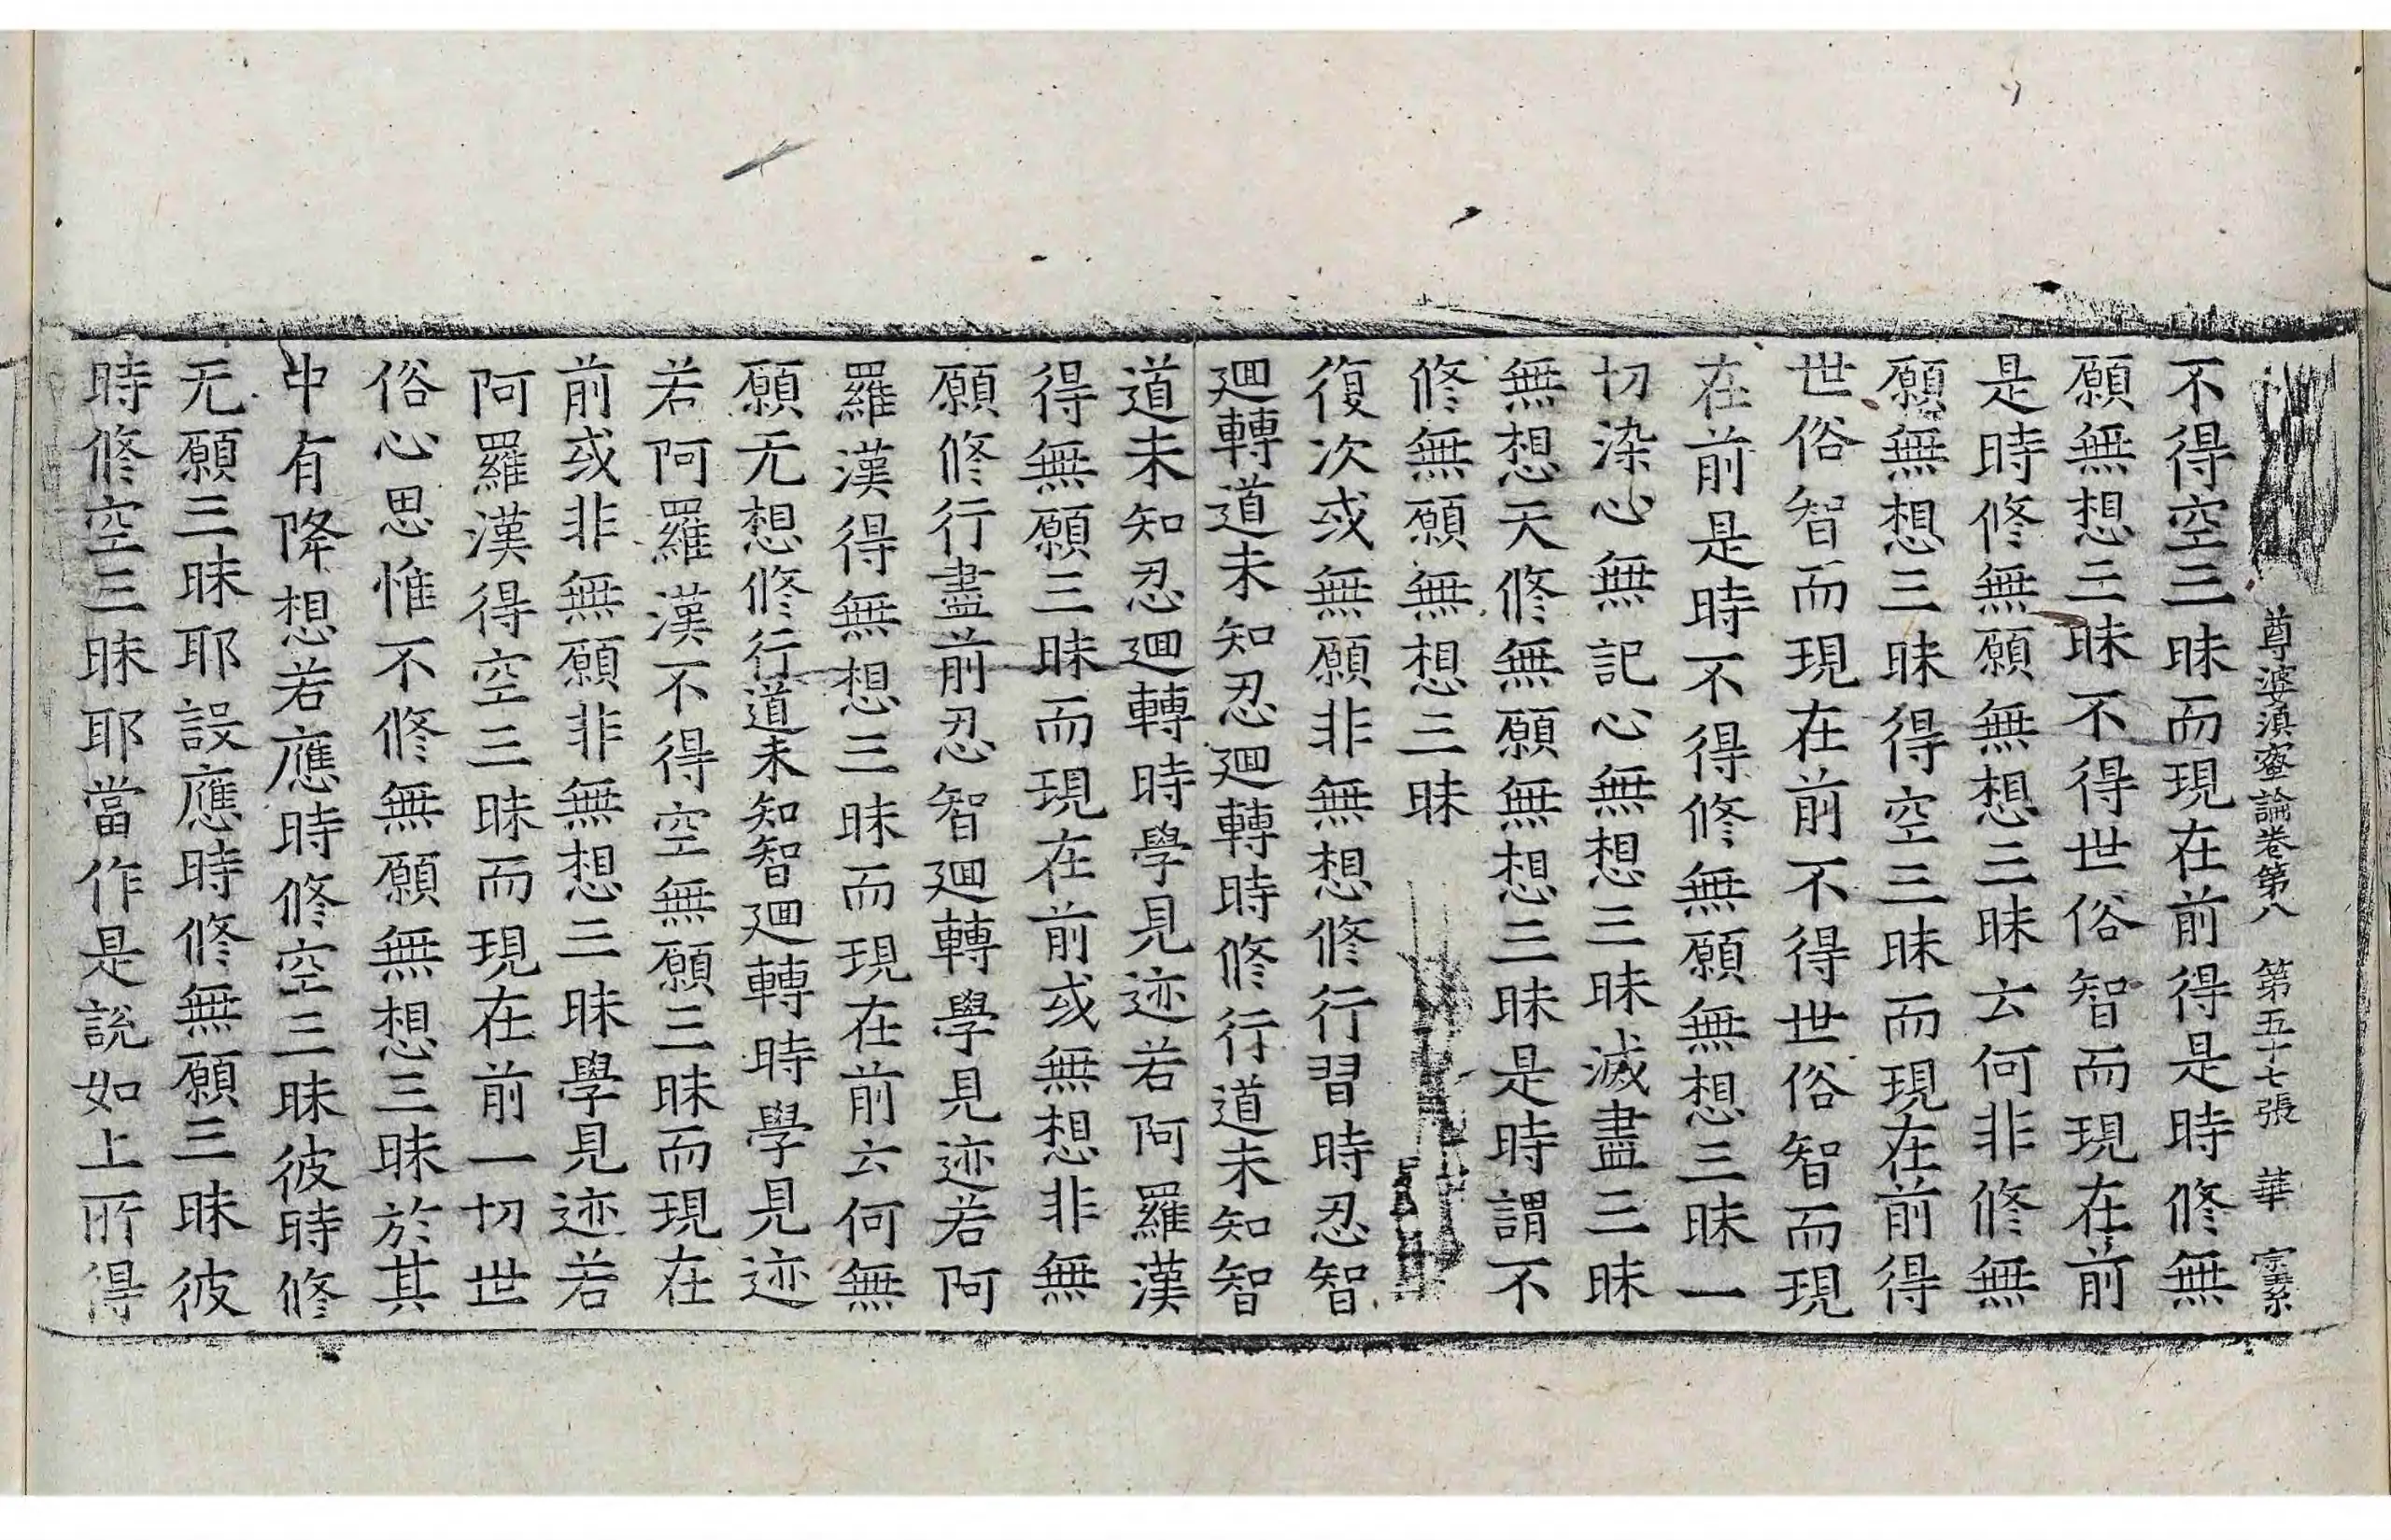 尊婆湏蜜論卷第八 第五十七張 華 宗素
不得空三昧而現在前得是時修無
願無想三昧不得世俗智而現在前
是時修無願無想三昧云何非修無
願無想三昧得空三昧而現在前得
世俗智而現在前不得世俗智而現
在前是時不得修無願無想三昧一
切染心無記心無想三昧滅盡三昧
無想天修無願無想三昧是時謂不
修無願無想三昧
復次或無願非無想修行習時忍智
迴轉道未知忍迴轉時修行道未知智
道未知忍迴轉時學見迹若阿羅漢
得無願三昧而現在前或無想非無
願修行盡前忍智迴轉學見迹若阿
羅漢得無想三昧而現在前云何無
願无想修行道未知智迴轉時學見迹
若阿羅漢不得空無願三昧而現在
前或非無願非無想三昧學見迹若
阿羅漢得空三昧而現在前一切世
俗心思惟不修無願無想三昧於其
中有降想若應時修空三昧彼時修
无願三昧耶設應時修無願三昧彼
時修空三昧耶當作是說如上所得